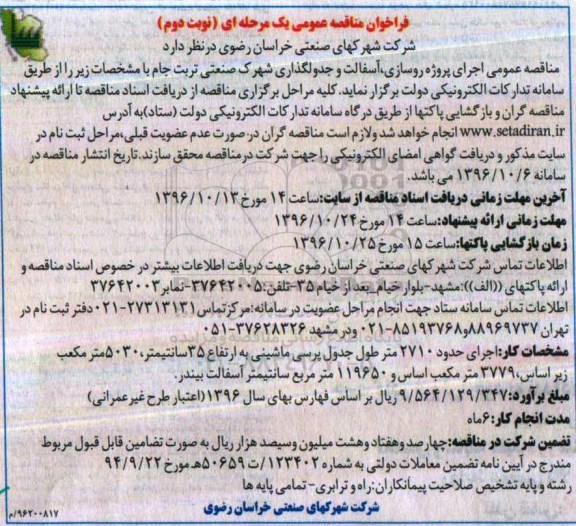 فراخوان مناقصه عمومی یک مرحله ای (نوبت دوم)
شرکت شهرکهای صنعتی خراسان رضوی درنظر دارد
مناقصه عمومی اجرای پروژه روسازی،آسفالت و جدولگذاری شهرک صنعتی تربت جام با مشخصات زیر را از طریق
سامانه تدارکات الکترونیکی دولت برگزار نماید. کلیه مراحل برگزاری مناقصه از دریافت اسناد مناقصه تا ارائه پیشنهاد
مناقصه گران و بازگشایی پاکتها از طریق درگاه سامانه تدارکات الکترونیکی دولت (ستاد)به آدرس
www.setadiran.ir انجام خواهد شد ولازم است مناقصه گران در صورت عدم عضویت قبلی،مراحل ثبت نام در
سایت مذکور و دریافت گواهی امضای الکترونیکی را جهت شرکت در مناقصه محقق سازند.تاریخ انتشار مناقصه در
سامانه ۱۳۹۶/۱۰/۶ می باشد.
آخرین مهلت زمانی دریافت اسناد مناقصه از سایت:ساعت ۱۴ مورخ ۱۳۹۶/۱۰/۱۳
مهلت زمانی ارائه پیشنهاد:ساعت ۱۴ مورخ ۱۳۹۶/۱۰/۲۴
زمان بازگشایی پاکتها:ساعت ۱۵ مورخ ۱۳۹۶/۱۰/۲۵
اطلاعات تماس شرکت شهرکهای صنعتی خراسان رضوی جهت دریافت اطلاعات بیشتر در خصوص اسناد مناقصه و
ارائه پاکتهای ((الف)):مشهد-بلوار خیام_بعد از خیام ۳۵-تلفن:۳۷۶۴۲۰۰۵-نمابر۳۷۶۴۲۰۰۳
اطلاعات تماس سامانه ستاد جهت انجام مراحل عضویت در سامانه:مرکز تماس۲۷۳۱۳۱۳۱-۰۲۱دفتر ثبت نام در
تهران ۸۸۹۶۹۷۳۷و۸۵۱۹۳۷۶۸-۰۲۱ ودر مشهد ۳۷۶۲۸۳۲۶-۰۵۱
مشخصات کار:اجرای حدود ۲۷۱۰ متر طول جدول پرسی ماشینی به ارتفاع ۳۵سانتیمتر،۵۰۳۰متر مکعب
زیر اساس،۳۷۷۹ متر مکعب اساس و ۱۱۹۶۵۰ متر مربع سانتیمتر آسفالت بیندر.
مبلغ برآورد:۹/۵۶۴/۱۲۹/۳۴۷ ریال بر اساس فهارس بهای سال ۱۳۹۶(اعتبار طرح غیر عمرانی)
مدت انجام کار:۶ماه
تضمین شرکت در مناقصه:چهارصد وهفتاد وهشت میلیون وسیصد هزار ریال به صورت تضامین قابل قبول مربوط
مندرج در آیین نامه تضمین معاملات دولتی به شماره ۱۲۳۴۰۲/ت ۵۰۶۵۹هـ مورخ ۹۴/۹/۲۲
رشته و پایه تشخیص صلاحیت پیمانکاران:راه و ترابری- تمامی پایه ها
شرکت شهرکهای صنعتی خراسان رضوی
۹۶۲۰۰۸۱۷/م